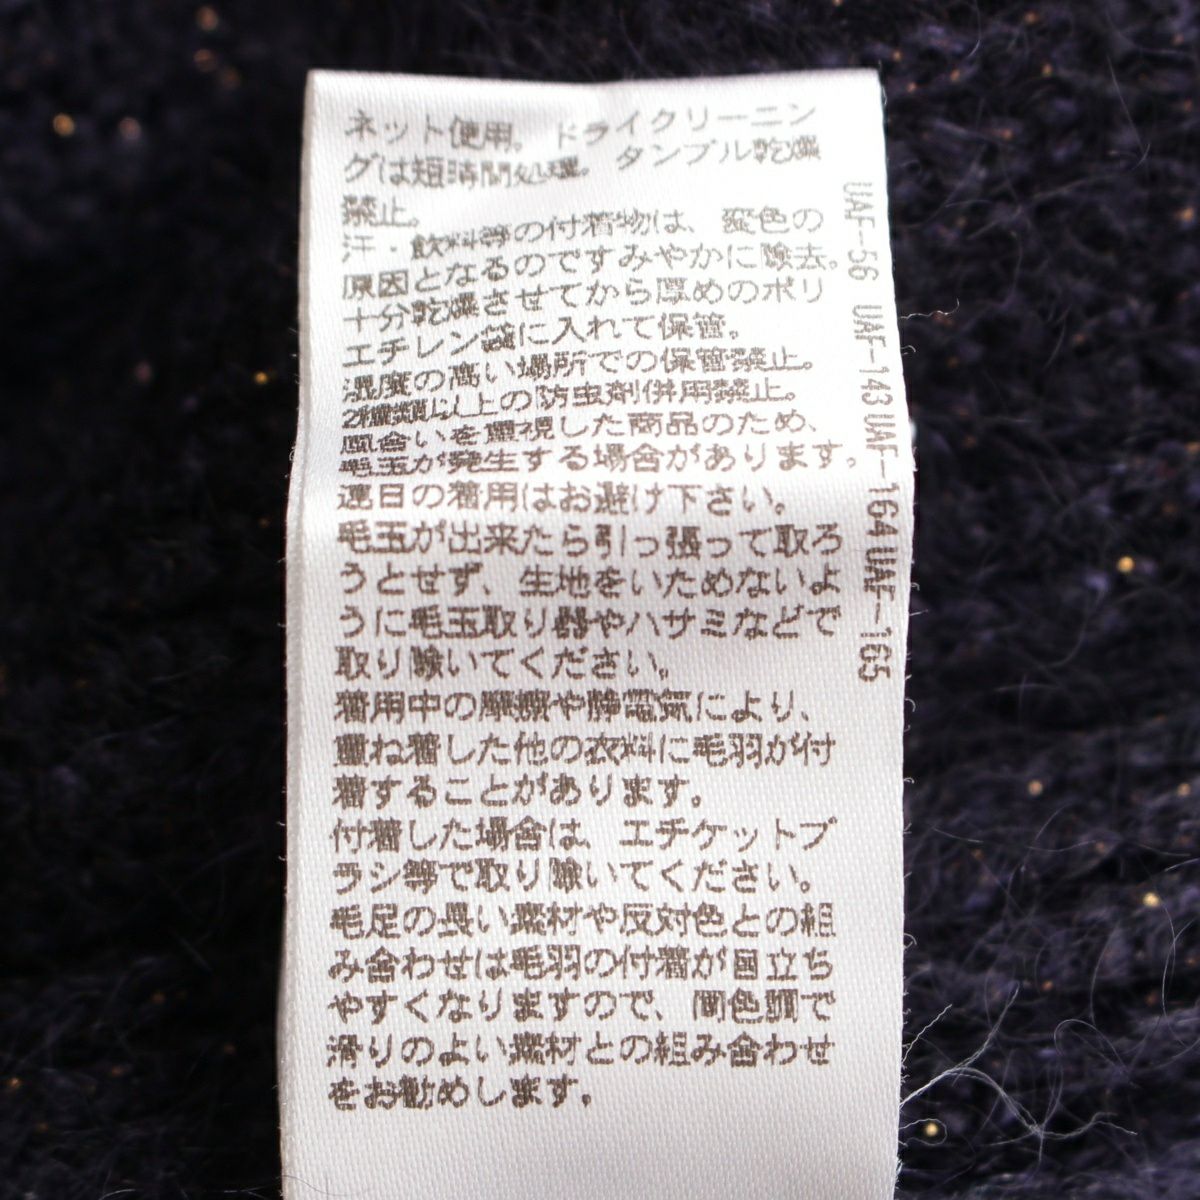 ネット使用。ドライクリーニン
グは短時間処理。タンブル乾燥
禁止。
汗・飲料等の付着物は、変色の
原因となるのですみやかに除去。
十分乾燥させてから厚めのポリ
エチレン袋に入れて保管。
湿度の高い場所での保管禁止。
2種類以上の防虫剤併用禁止。
風合いを重視した商品のため、
毛玉が発生する場合があります。
連日の着用はお避け下さい。
毛玉が出来たら引っ張って取ろ
うとせず、生地をいためないよ
うに毛玉取り器やハサミなどで
取り除いてください。
着用中の摩擦や静電気により、
重ね着した他の衣料に毛羽が付
着することがあります。
付着した場合は、エチケットブ
ラシ等で取り除いてください。
毛足の長い素材や反対色との組
み合わせは毛羽の付着が目立ち
やすくなりますので、同色調で
滑りのよい素材との組み合わせ
をお勧めします。
UAF-56 UAF-143 UAF-164 UAF-165